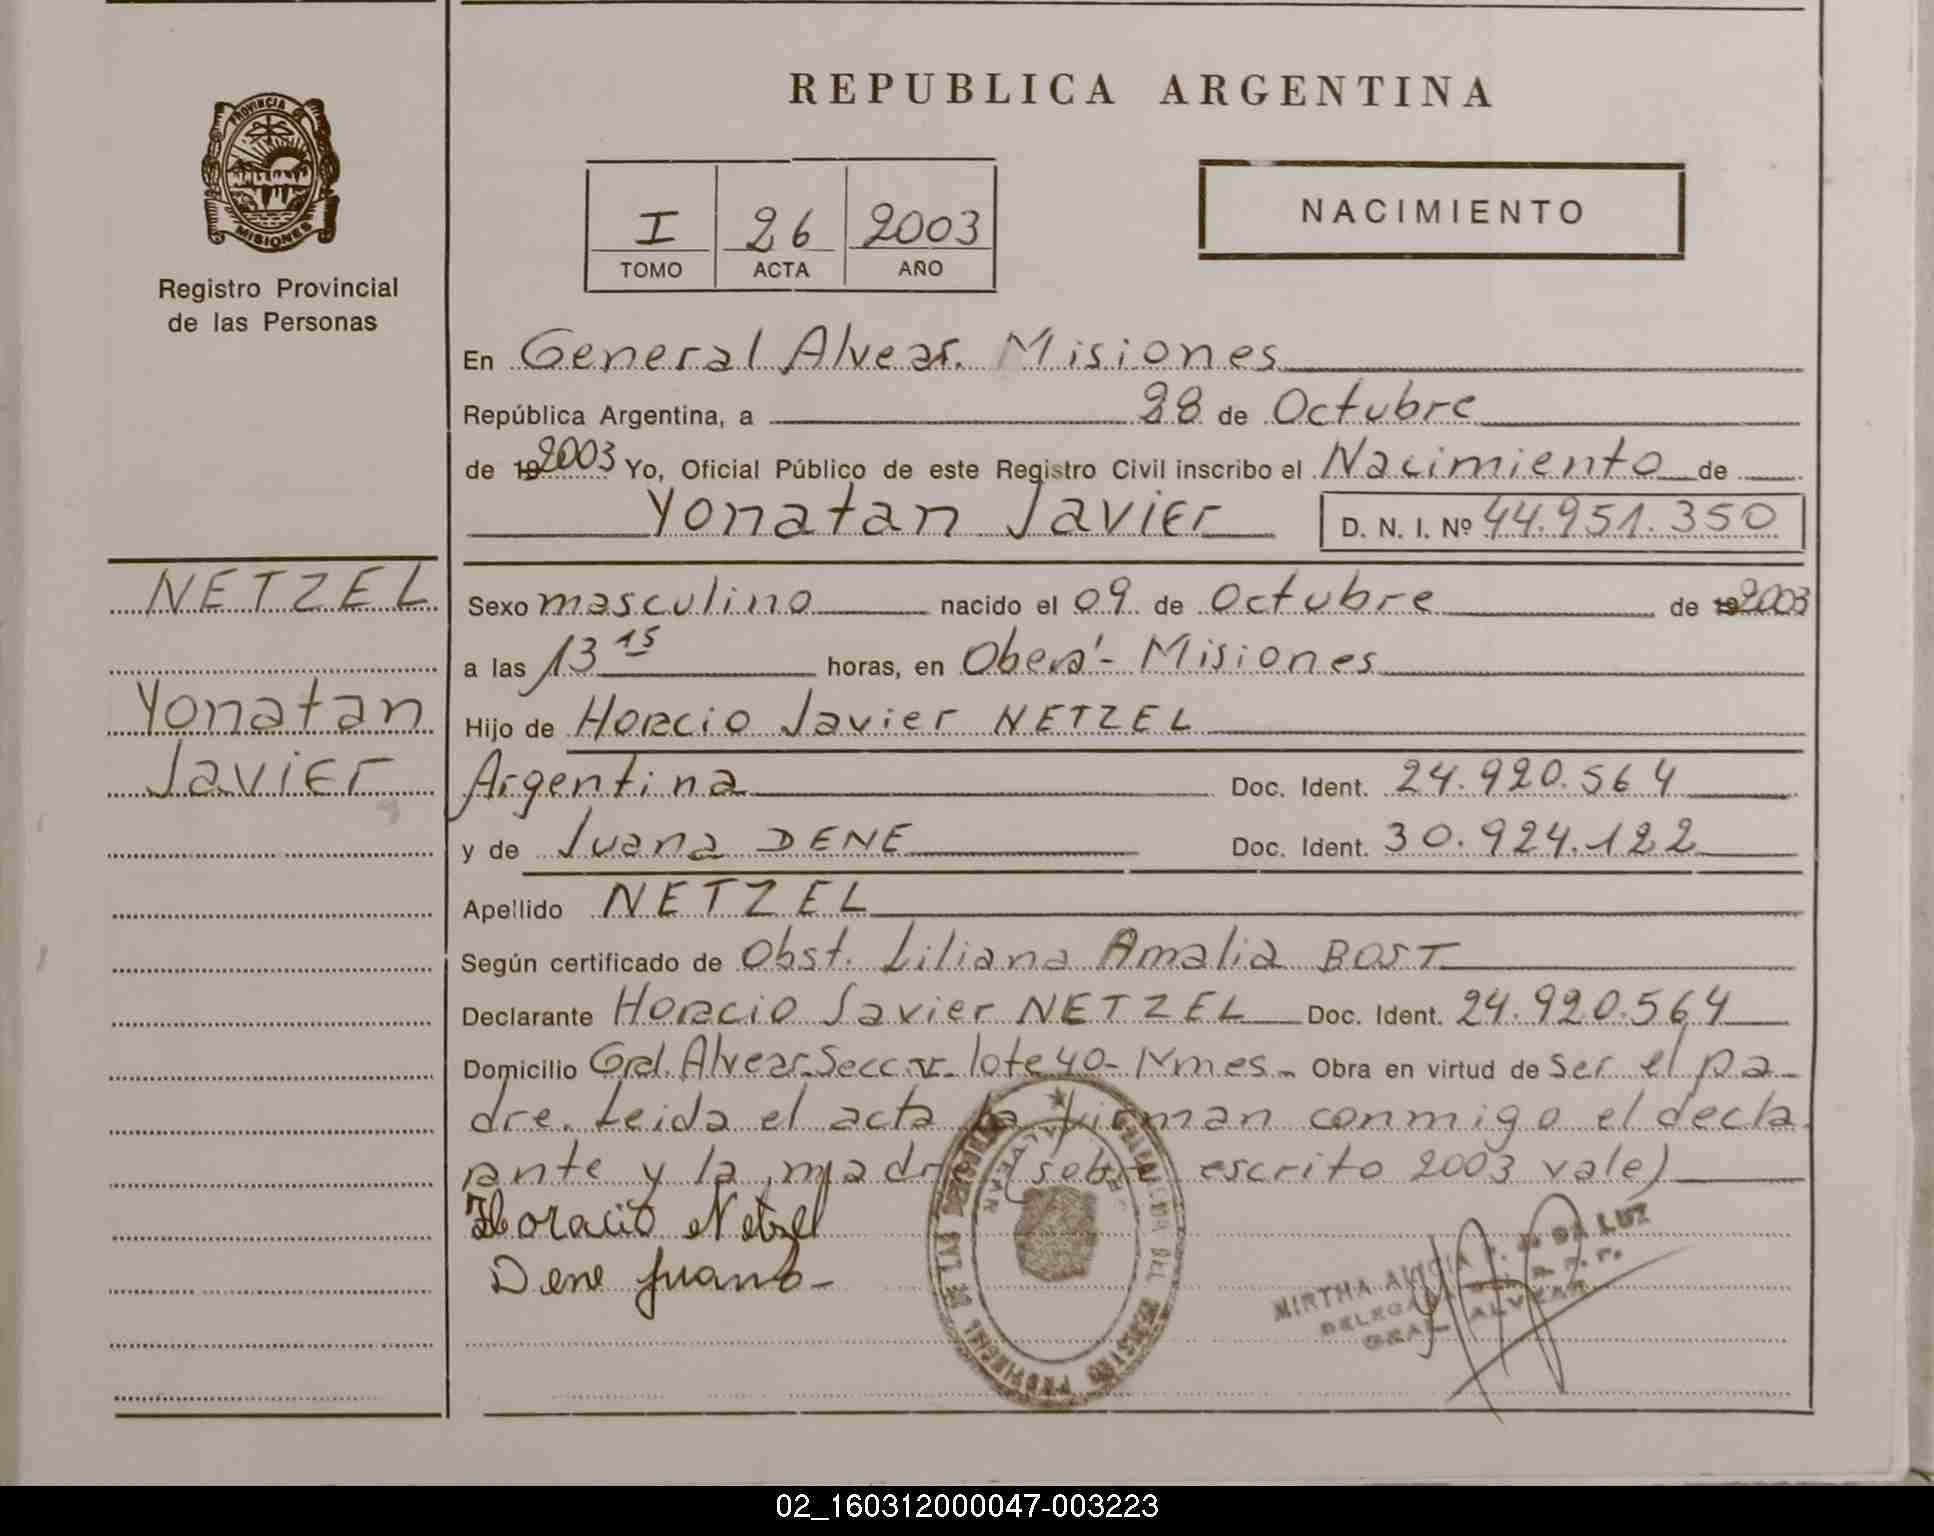 REPUBLICA ARGENTINA
PROVINCIA DE MISIONES
Registro Provincial
de las Personas
I 26 2003
TOMO ACTA AÑO
NACIMIENTO
En General Alvear. Misiones
República Argentina, a 28 de Octubre
de 19 2003 Yo, Oficial Público de este Registro Civil inscribo el Nacimiento de
Yonatan Javier D. N. I. Nº 44.951.350
NETZEL
Yonatan
Javier
Sexo masculino nacido el 09 de Octubre de 19 2003
a las 13 15 horas, en Oberá - Misiones
Hijo de Horacio Javier NETZEL
Argentina Doc. Ident. 24.920.564
y de Juana DENE Doc. Ident. 30.924.122
Apellido NETZEL
Según certificado de Obst. Liliana Amalia BOST
Declarante Horacio Javier NETZEL Doc. Ident. 24.920.564
Domicilio Gral. Alvear Secc. lote 40- Mnes - Obra en virtud de Ser el pa-
dre. Leida el acta la firman conmigo el decla
rante y la madre (sobre escrito 2003 vale)
Horacio Netzel
Dene Juana -
MIRTHA ALICIA DA LUZ
DELEGADA R. P. P.
GRAL. ALVEAR
02_160312000047-003223